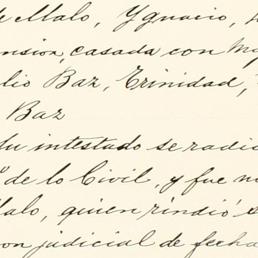 de Malo, Ygnacio,
ension, casada con
lio Baz, Trinidad,
Baz
Su intestado se radic
de lo Civil, y fue n
alo, quien rindió
on judicial de fecha